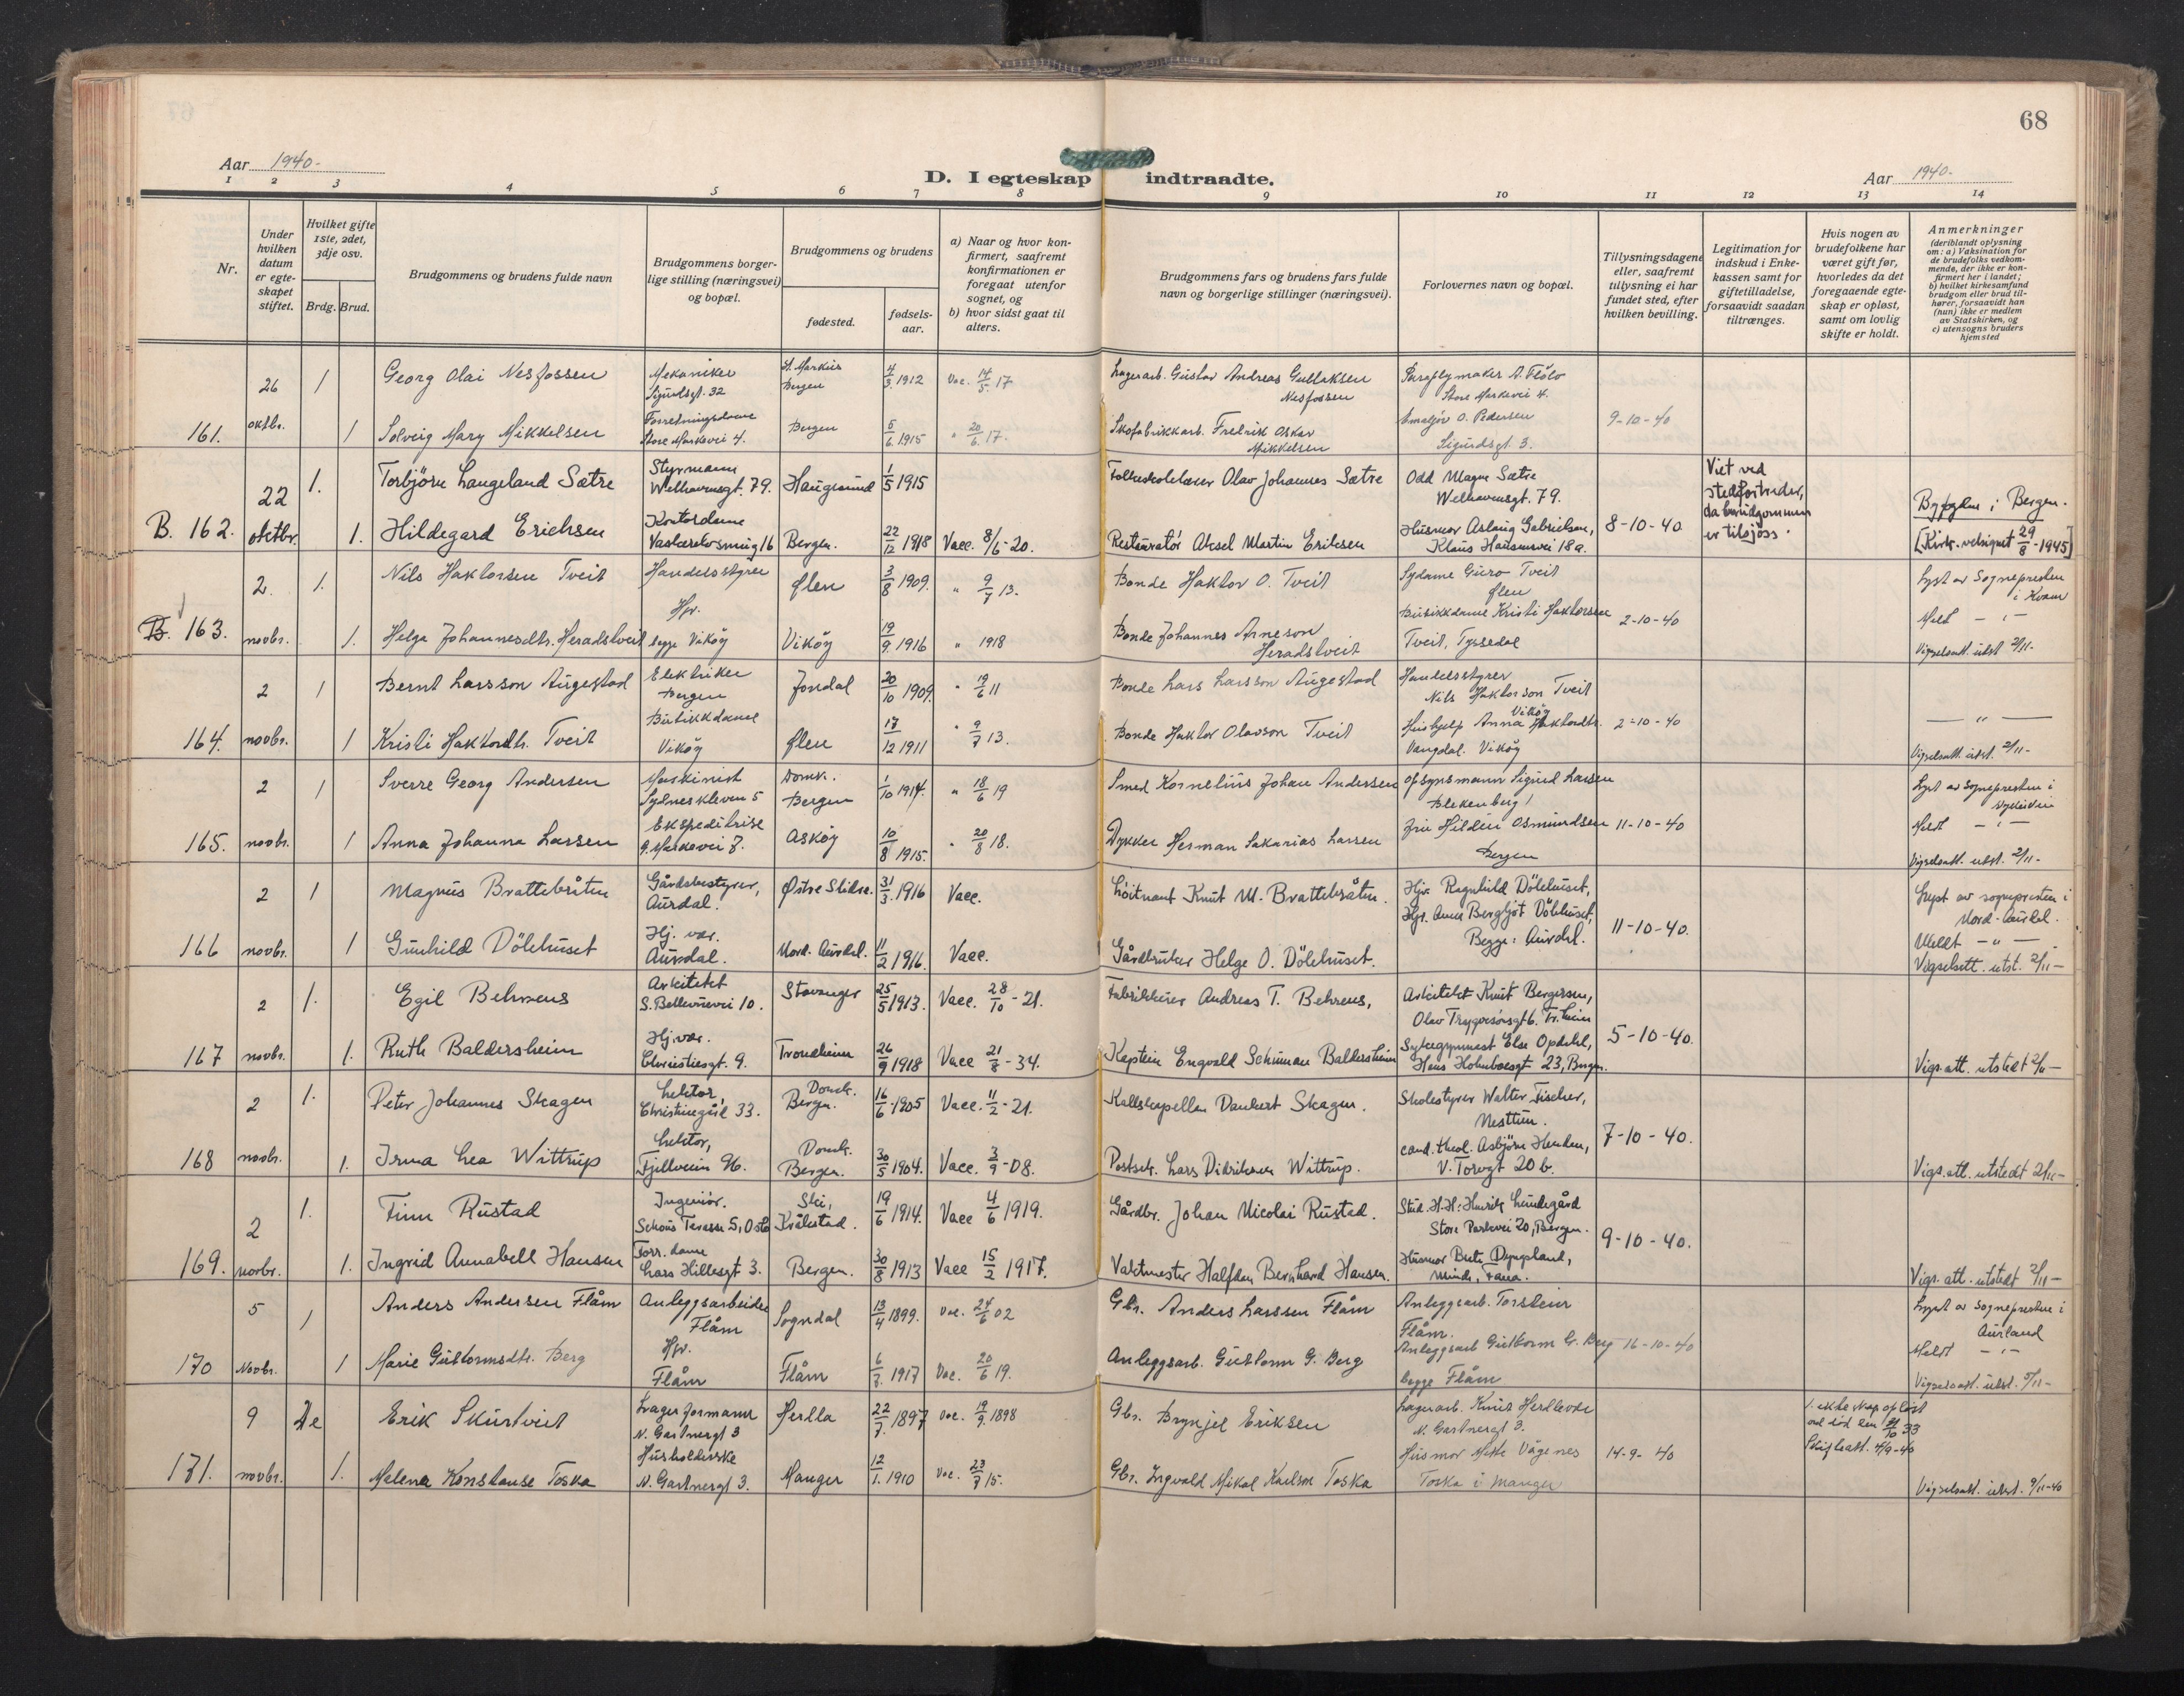 68
Aar 1940.
D. I egteskap indtraadte.
Aar 1940.
1 2 3 4 5 6 7 8 9 10 11 12 13 14
Nr.
Under hvilken datum er egte-skapet stiftet.
Hvilket gifte 1ste, 2det, 3dje osv.
Brdg. Brud.
Brudgommens og brudens fulde navn
Brudgommens borger-lige stilling (næringsvei) og bopæl.
Brudgommens og brudens
fødested.
fødsels-aar.
a) Naar og hvor kon-firmert, saafremt konfirmationen er foregaat utenfor sognet, og
b) hvor sidst gaat til alters.
Brudgommens fars og brudens fars fulde navn og borgerlige stillinger (næringsvei).
Forlovernes navn og bopæl.
Tillysningsdagene eller, saafremt tillysning ei har fundet sted, efter hvilken bevilling.
Legitimation for indskud i Enke-kassen samt for giftetilladelse, forsaavidt saadan tiltrænges.
Hvis nogen av brudefolkene har været gift før, hvorledes da det foregaaende egte-skap er opløst, samt om lovlig skifte er holdt.
Anmerkninger
(deriblandt oplysning om: a) Vaksination for de brudefolks vedkom-mende, der ikke er kon-firmert her i landet; b) hvilket kirkesamfund brudgom eller brud til-hører, forsaavidt han (hun) ikke er medlem av Statskirken, og c) utensogns bruders hjemsted
26 1 Georg Olai Nesfossen Mekaniker St. Markus 4/3 1912 Vac. 14/5 17 Lagerarb. Gustav Andreas Gullaksen Paraplymaker A. Flölo
Sigurdsgt. 32 Bergen Nesfossen Store Markevei 4.
161. oktbr. 1 Solveig Mary Mikkelsen Forretningsdame Bergen 5/6 1915 " 20/6 17. Skofabrikkarb. Fredrik Oskar O. Pedersen 9-10-40
Store Markevei 4. Mikkelsen Sigurdsgt. 3.
22 1. Torbjörn Langeland Sætre Styrmann Haugesund 1/5 1915 Folkeskolelærer Olav Johannes Sætre Odd Magne Sætre Viet ved
Welhavensgt. 79. Welhavensgt. 79. stedfortreder,
B. 162. oktbr. 1. Hildegard Erichsen Kontordame Bergen. 22/12 1918 Vacc. 8/6-20. Restauratör Aksel Martin Eriksen Husmor Aslaug Gabrielsen, 8-10-40 da brudgommen Byfogden i Bergen.
Klaus Hansensvei 18a. er tilsjöss. [Kirk. velsignet 29/8-1945]
2. 1. Nils Haktorsen Tveit Handelsstyrer Ølen 3/8 1909. " 9/7 13. Bonde Haktor O. Tveit Sydame Guro Tveit Lyst av Sognepresten
Ølen i Kvam
B. 163. novbr. 1. Helga Johannesdtr. Heradstveit Hjv. Viköy 19/9 1916 " 1918 Bonde Johannes Arneson Butikkdame Kristi Haktorsen 2-10-40 Meldt - " -
begge Viköy Heradstveit Tveit, Tyssedal Vigselsatt. utst 2/11-
2 1 Bernt Larsson Augestad Elektriker Jondal 20/10 1909. " 19/6 11 Bonde Lars Larsson Augestad Handelsstyrer
Bergen Nils Haktorson Tveit Viköy
164. novbr. 1 Kristi Haktordtr. Tveit Butikkdame Ølen 17/12 1911 " 9/7 13. Bonde Haktor Olavson Tveit Hushjelp Anna Haktordtr. 2-10-40 - " -
Viköy Vangdal. Viköy Vigselsatt. utst. 2/11-
2 1 Sverre Georg Andersen Maskinist Domk. 1/10 1914. " 18/6 19 Smed Kornelius Johan Andersen Opsynsmann Sigurd Larsen Lyst av Sognepresten i
Sydneskleven 5 Bergen Blekenberg
165. novbr. 1 Anna Johanna Larsen Ekspeditrise Asköy 10/8 1915. " 20/8 18. Dykker Herman Sakarias Larsen Fru Hildur Osmundsen 11-10-40 Meldt - " -
Markevei 7. Bergen Vigselsatt. utst. 2/11-
2 1 Magnus Brattebråten Gårdsbestyrer, Østre Slidre. 31/3 1916 Vacc. Löitnant Knut M. Brattebråten. Hjv. Ragnhild Dölehuset, Lyst av sognepresten i
Aurdal. Hjv. Anne Bergljot Dölehuset, Nord-Aurdal.
166 novbr. 1 Gunhild Dölehuset Hj. vær. Nord-Aurdal. 11/2 1916. Vacc. Gårdbruker Helge O. Dölehuset. Begge: Aurdal. 11-10-40. Meldt - " -
Aurdal. Vigselsatt. utst. 2/11-
2 1. Egil Behrens Arkitekt Stavanger 25/5 1913. Vacc. 28/10-21. Fabrikkeier Andreas T. Behrens, Arkitekt Knut Bergersen,
S. Bellevuevei 10. Olav Trygvesönsgt 6. Tr.heim
167 novbr. 1. Ruth Baldersheim Hj.vær. Trondheim 26/9 1918 Vacc 21/8-34. Kaptein Engvald Schuman Baldersheim Sykegymnast Else Opdahl, 5-10-40.
Christiesgt. 9. Hans Holmboesgt 23, Bergen. Vigs.att. utstedt 2/11-
2 1. Peter Johannes Skagen Lektor, Domk. Bergen. 16/6-1905 Vacc. 11/2-21. Kallskapellan Dankert Skagen. Skolestyrer Walter Fischer,
Christinegård 33. Nesttun.
168 novbr. 1. Irma Lea Wittrup Lektor, Domk. Bergen. 30/5 1904. Vacc. 3/9-08. Postsek. Lars Didriksen Wittrup. cand. theol. Asbjörn Henden, 7-10-40.
Fjellveien 96. V. Torvgt 20 b. Vigs.att. utstedt 2/11-
2 1. Finn Rustad Ingeniör. Ski, 19/6 1914. Vacc 4/6 1919. Gårdbr. Johan Nicolai Rustad. Stud. H.H. Henrik Lundegård
Schous Terasse 5, Oslo Kråkstad. Store Parkvei 20, Bergen.
169. novbr. 1. Ingrid Annabell Hansen Forr. dame Bergen. 30/8 1913 Vacc 15/2 1917. Vaktmester Halfdan Bernhard Hansen. Husmor Bertha Dyngeland, 9-10-40.
Lars Hillesgt 3. Minde, Fana. Vigs. att. utstedt 2/11-
5 1 Anders Andersen Flåm Anleggsarbeider Sogndal 13/4 1899. Vac. 24/6 02 Gbr. Anders Larssen Flåm Anleggsarb. Torstein Lyst av Sognepresten i
Flåm Flåm. Aurland
170 Novbr. 1 Marie Guttormsdtr. Berg Hjv. Flåm 6/7. 1917 Vac. 20/6 19. Anleggsarb. Guttorm G. Berg Anleggsarb Guttorm G. Berg 16-10-40 Meldt - " -
Flåm begge Flåm Vigselsatt. utst. 5/11-
9 2de Erik Skurtveit Lagerformann Herdla 22/7. 1897 Vac. 19/9. 1898 Gbr. Brynjel Eriksen Lagerarb. Knut Herdlevær 1. ekteskap oplöst
N. Gartnergt 3 N. Gartnergt 3. ved död den 33
171. novbr. 1. Malena Konstanse Toska Husholderske Manger 12/1. 1910 Vac. 23/7 15. Gbr. Ingvald Mikal Knutson Toska Husmor Mette Vågenes 14-9-40 Skifteatt. 4/9-40
N. Gartnergt 3. Toska i Manger Vigselsatt. utst. 9/11-40